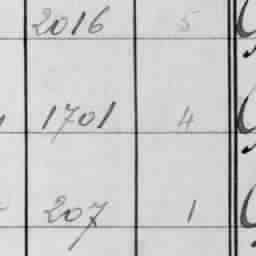 2016 5
1701 4
207 1